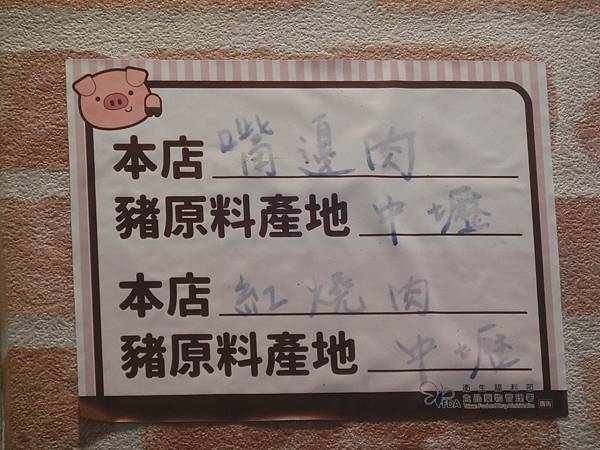 本店嘴邊肉
豬原料產地中壢
本店紅燒肉
豬原料產地中壢
衛生福利部
食品藥物管理署
FDA Taiwan Food and Drug Administration
廣告